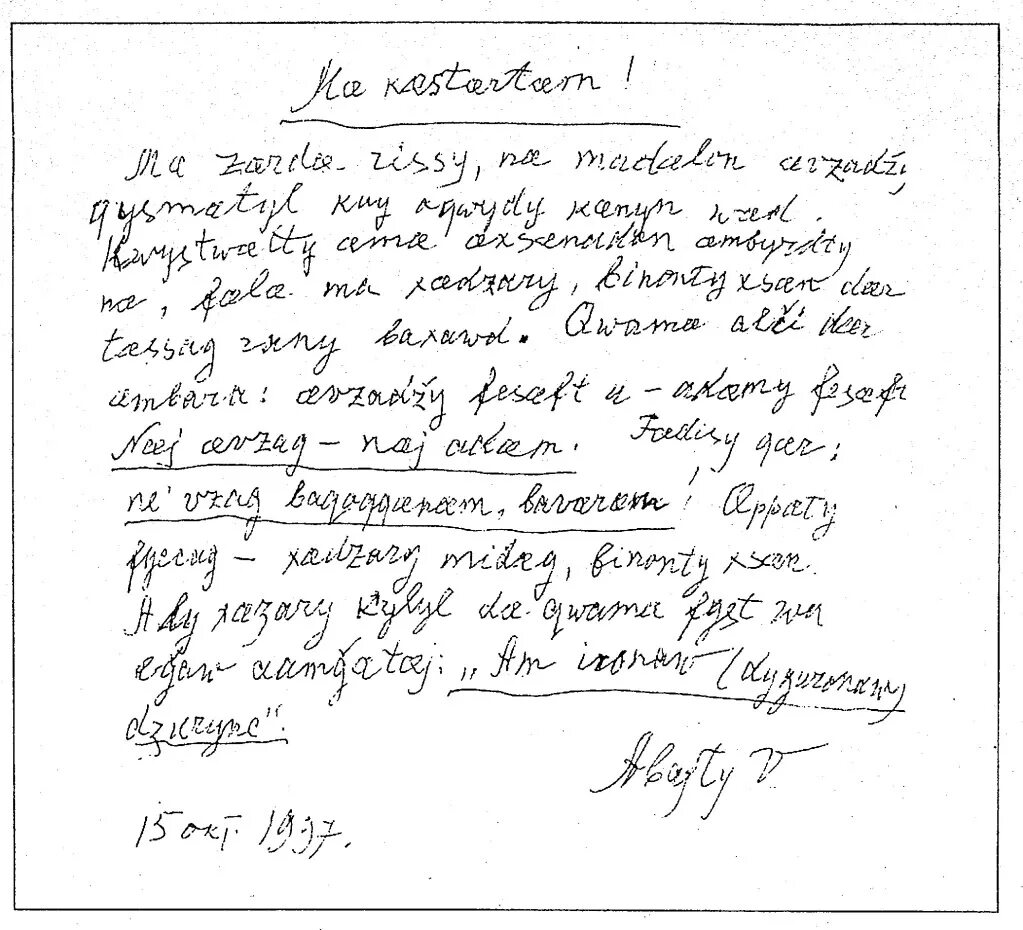 Mæ kæstærtæm!
Mæ zærdæ rissy, næ madælon ævzadžy
qysmætyl kuy aqwydy kænyn wæd.
Kwystwætty æmæ æxsænadon æmbyrdty
næ, fælæ ma xædzary, binonty xsæn dær
tæssag wny baxawd. Qwamæ alči dær
æmbara: ævzadžy fesæft u – adæmy fesæft
Næj ævzag – næj adæm. Fædisy qær:
ne'vzag baqaqqænæm, baværæm! Appæty
fyccag – xædzary midæg, binonty xsæn.
Ady xæzary kʼulyl dæ qwamæ fyst wa
ægʻaw aamyatæj: „Am ironaw (dyguronaw)
dzurync“.
Abajty V
15 okt. 1997.